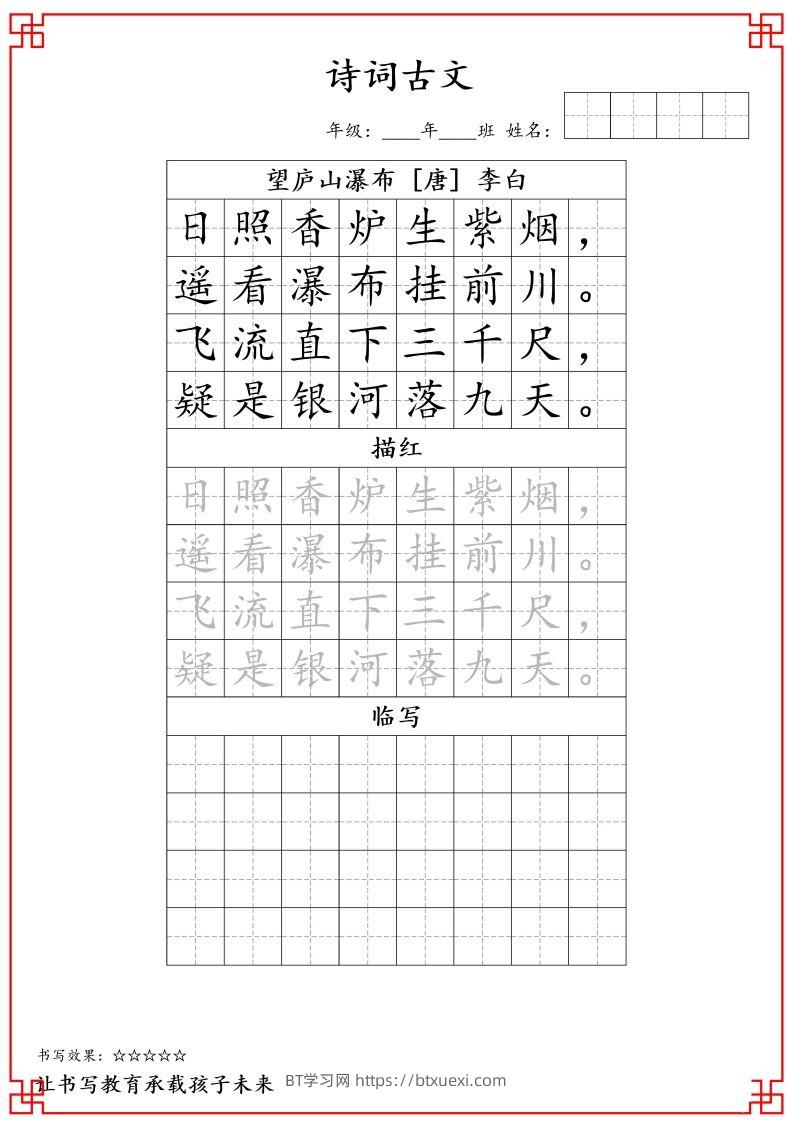 诗词古文
年级：____年____班 姓名：
望庐山瀑布［唐］李白
日照香炉生紫烟，
遥看瀑布挂前川。
飞流直下三千尺，
疑是银河落九天。
描红
日照香炉生紫烟，
遥看瀑布挂前川。
飞流直下三千尺，
疑是银河落九天。
临写
书写效果：☆☆☆☆☆
让书写教育承载孩子未来 BT学习网 https://btxuexi.com